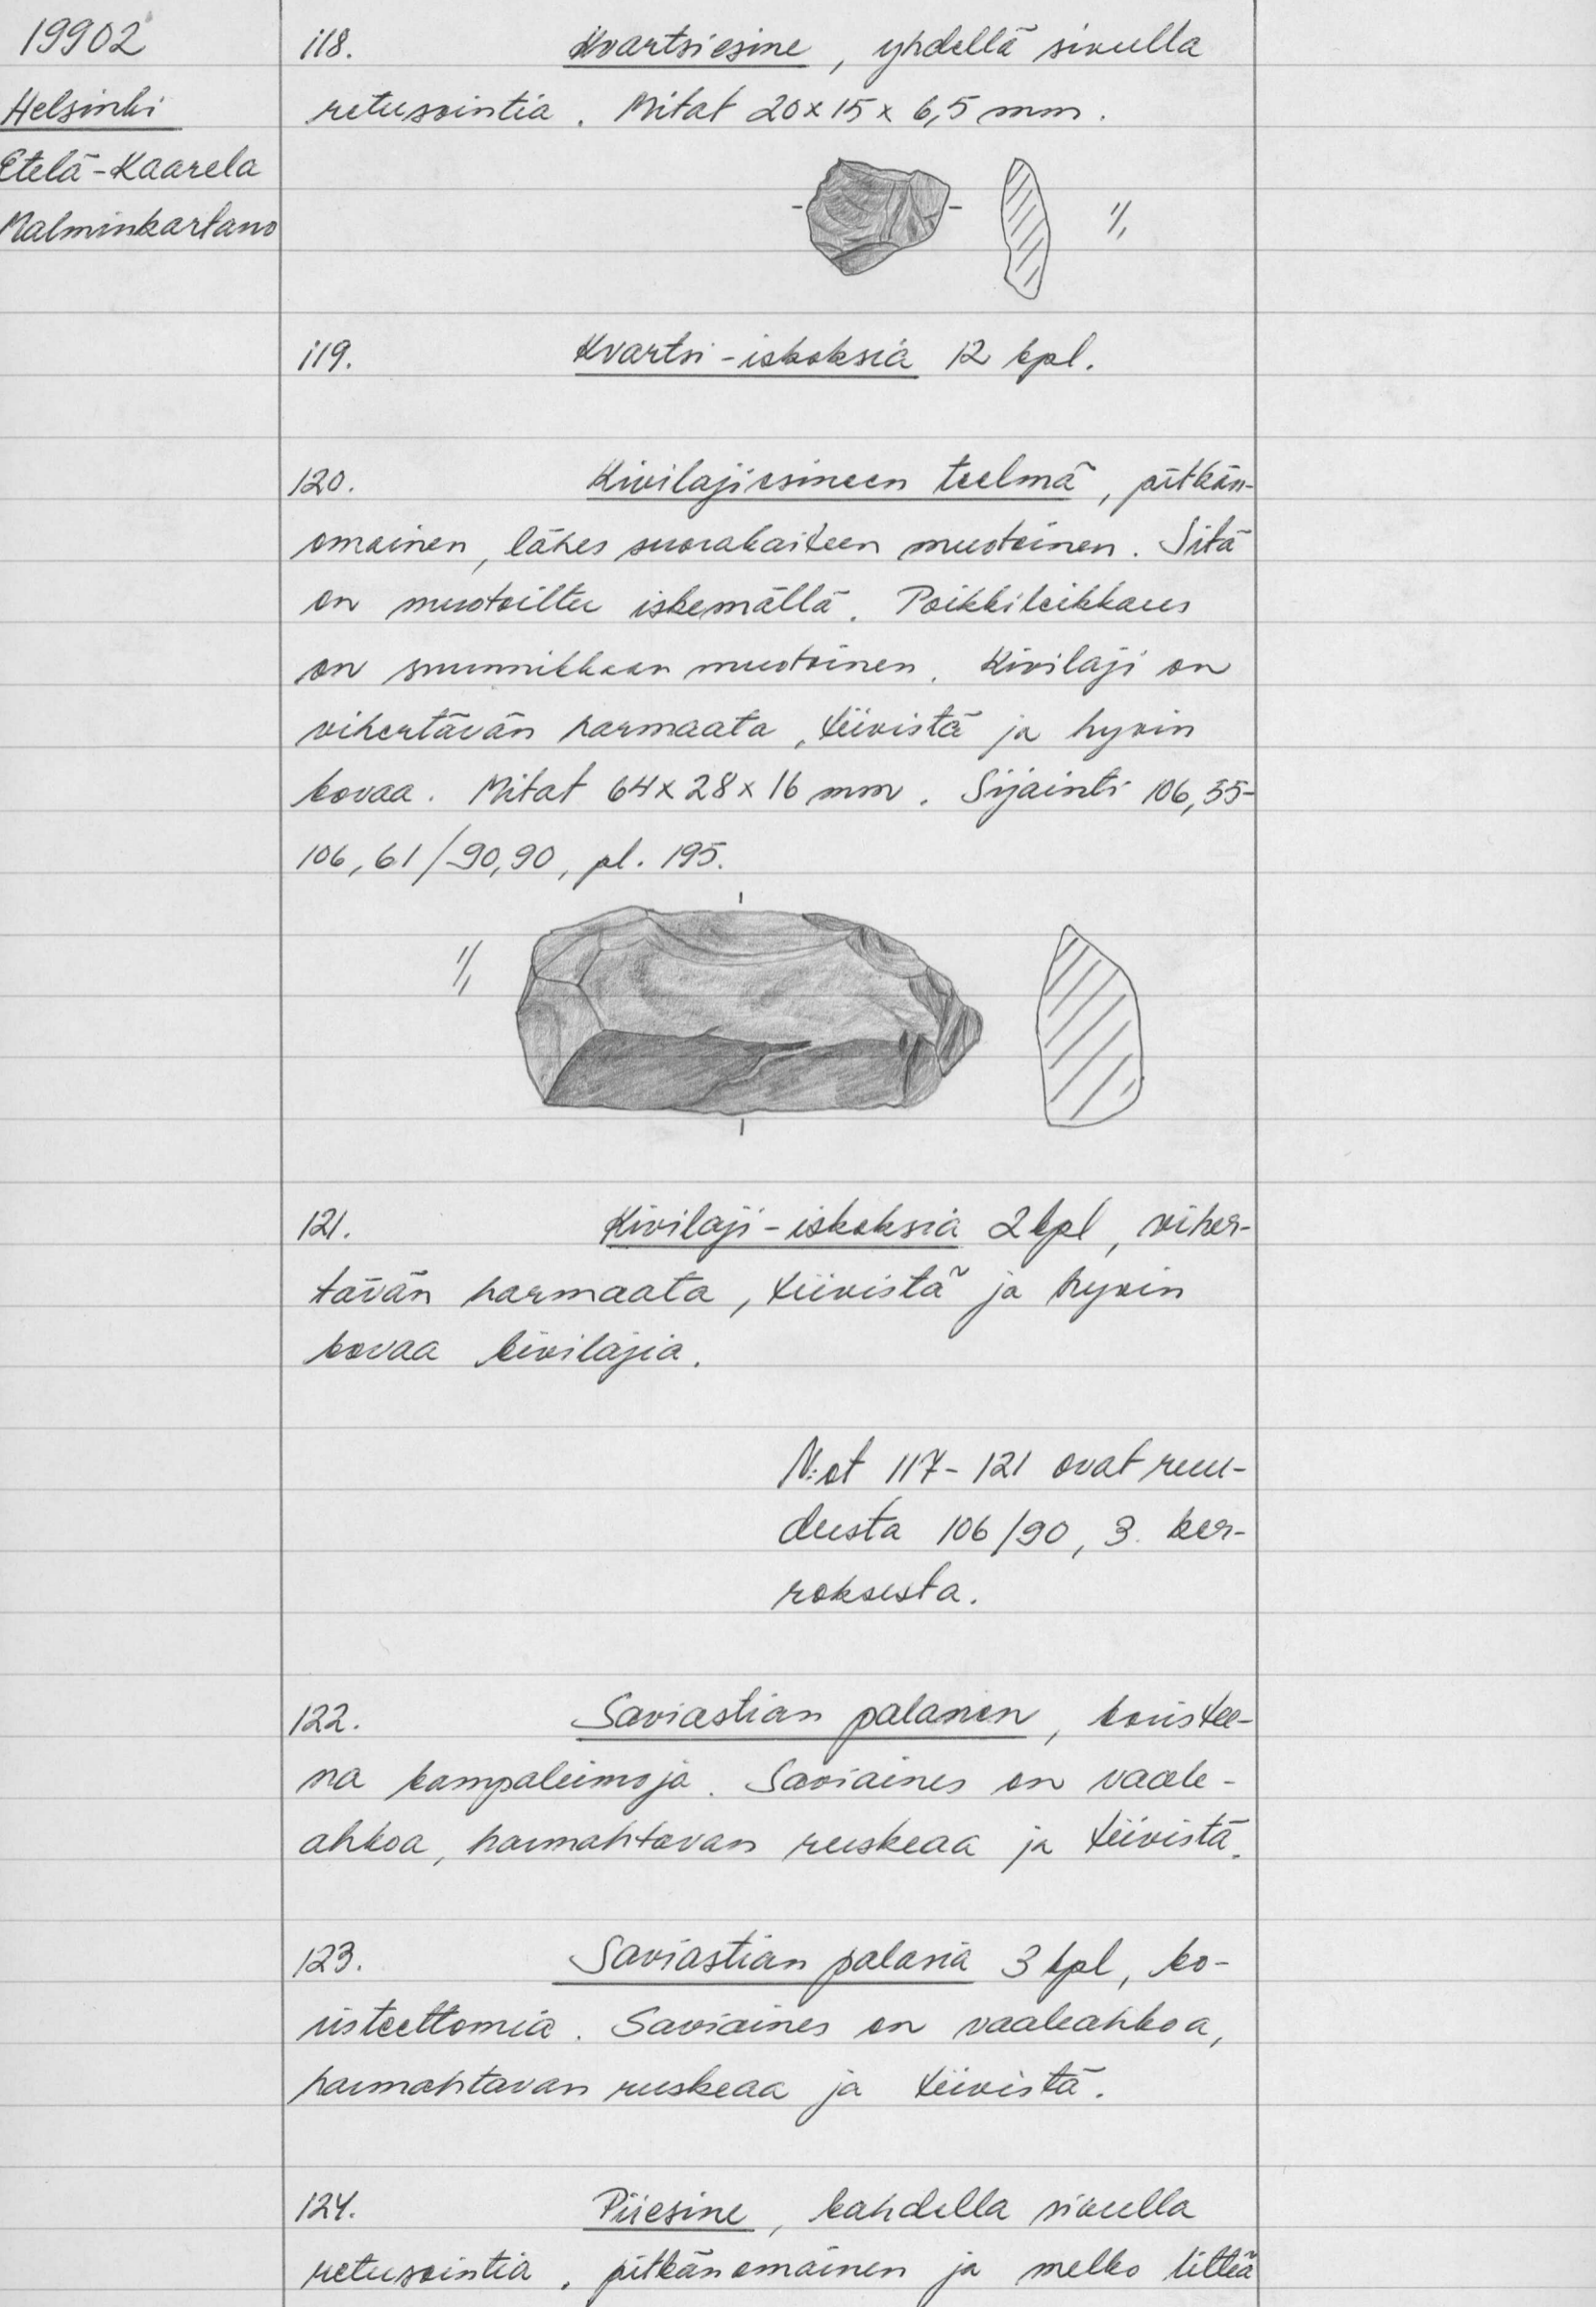 19902
Helsinki
Etelä-Kaarela
Malminkartano
118. Kvartsiesine, yhdellä sivulla
retusointia. Mitat 20x15x6,5 mm.
1/1
119. Kvartsi-iskoksia 12 kpl.
120. Kivilajiesineen teelmä, pitkän-
omainen, lähes suorakaiteen muotoinen. Sitä
on muotoiltu iskemällä. Poikkileikkaus
on suunnikkaan muotoinen. Kivilaji on
vihertävän harmaata, tiivistä ja hyvin
kovaa. Mitat 64x28x16 mm. Sijainti 106,55-
106,61/90,90, pl. 195.
1/1
121. Kivilaji-iskoksia 2 kpl, viher-
tävän harmaata, tiivistä ja hyvin
kovaa kivilajia.
N:ot 117-121 ovat ruu-
dusta 106/90, 3. ker-
roksesta.
122. Saviastian palanen, koristee-
na kampaleimoja. Saviaines on vaale-
ahkoa, harmahtavan ruskeaa ja tiivistä.
123. Saviastian palasia 3 kpl, ko-
risteettomia. Saviaines on vaaleahkoa,
harmahtavan ruskeaa ja tiivistä.
124. Piiesine, kahdella sivulla
retusointia, pitkänomainen ja melko litteä